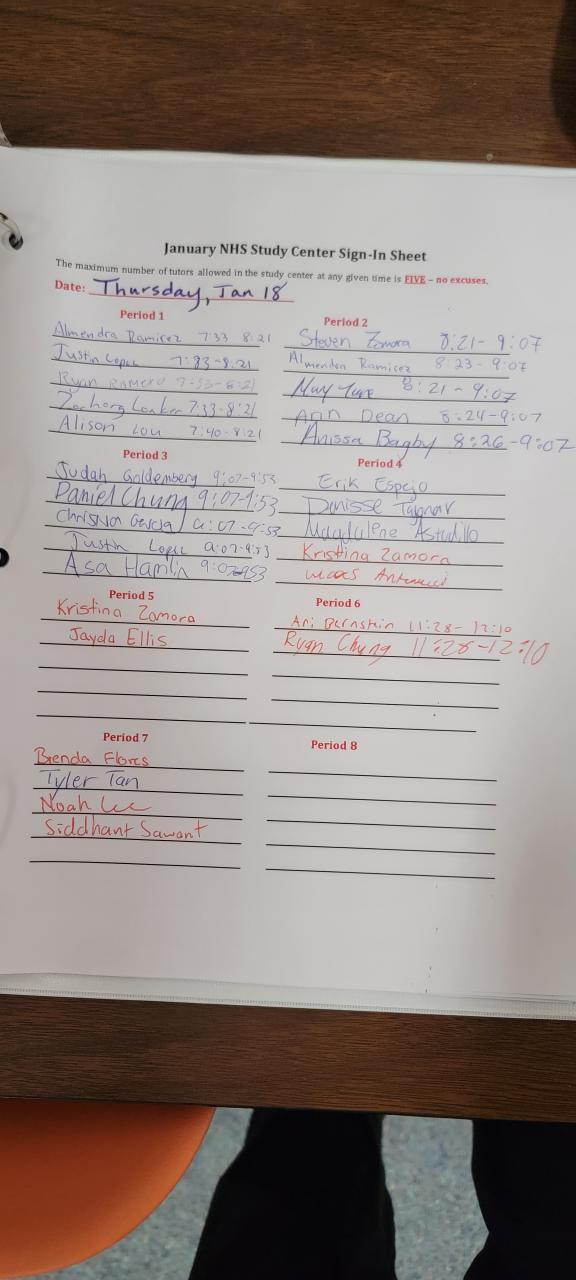 January NHS Study Center Sign-In Sheet
The maximum number of tutors allowed in the study center at any given time is FIVE – no excuses.
Date: Thursday, Jan 18
Period 1
Almendra Ramirez 7:33 8:21
Justin Lopez 7:33-8:21
Ryan Romero 7:33-8:21
7:33-8:21
Alison Lou 7:40-8:21
Period 2
Steven Zamora 8:21-9:07
Almendra Ramirez 8:23-9:07
May 8:21-9:07
Ann Dean 8:24-9:07
Anissa Bagby 8:26-9:07
Period 3
Judah Goldemberg 9:07-9:53
Daniel Chung 9:07-9:53
Christian Garcia 9:07-9:53
Justin Lopez 9:07-9:53
Asa Hamlin 9:07-953
Period 4
Erik Espejo
Denisse
Magdalene Astudillo
Kristina Zamora
Period 5
Kristina Zamora
Jayda Ellis
Period 6
Ari Bernstein 11:28-12:10
Ryan Chung 11:28-12:10
Period 7
Brenda Flores
Tyler Tan
Noah Lee
Siddhant Sawant
Period 8